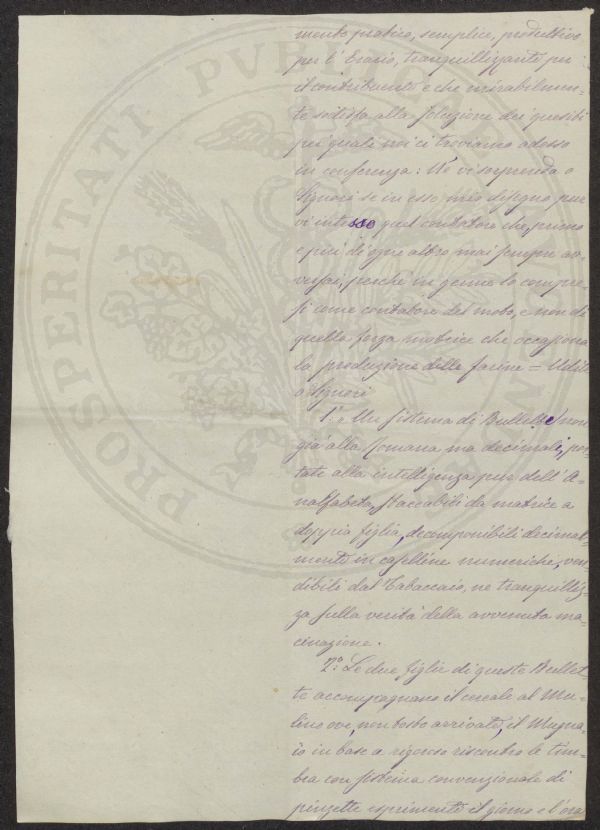 mento pratico, semplice, produttivo
per l'Erario, tranquillizzante per
il contribuente e che mirabilmen-
te sodisfa alla soluzione dei quesiti
pei quali noi ci troviamo adesso
in conferenza: Ne vi sorprenda o
Signori se in esso mio disegno pure
vi intesso quel contatore che, primo
e più di ogni altro mai sempre av-
versai, perchè in genere lo compre-
si come contatore del moto, e non di
quella forza motrice che occasiona
la produzione delle farine = Udite
o Signori
1.o Un sistema di Bullette non
già alla Romana ma decimali, por-
tate alla intelligenza pur dell'A-
nalfabeta, staccabili da matrice a
doppia figlia, decomponibili decimal-
mente in caselline numeriche, ven-
dibili dal Tabaccaio, ne tranquilliz-
za sulla verità della avvenuta ma-
cinazione.
2.o Le due figlie di queste Bullet-
te accompagnano il cereale al Mu-
lino ove, non tosto arrivate, il Mugna-
io in base a rigoroso riscontro le tim-
bra con sistema convenzionale di
pinzette esprimente il giorno e l'ora
PROSPERITATI PVBLICAE